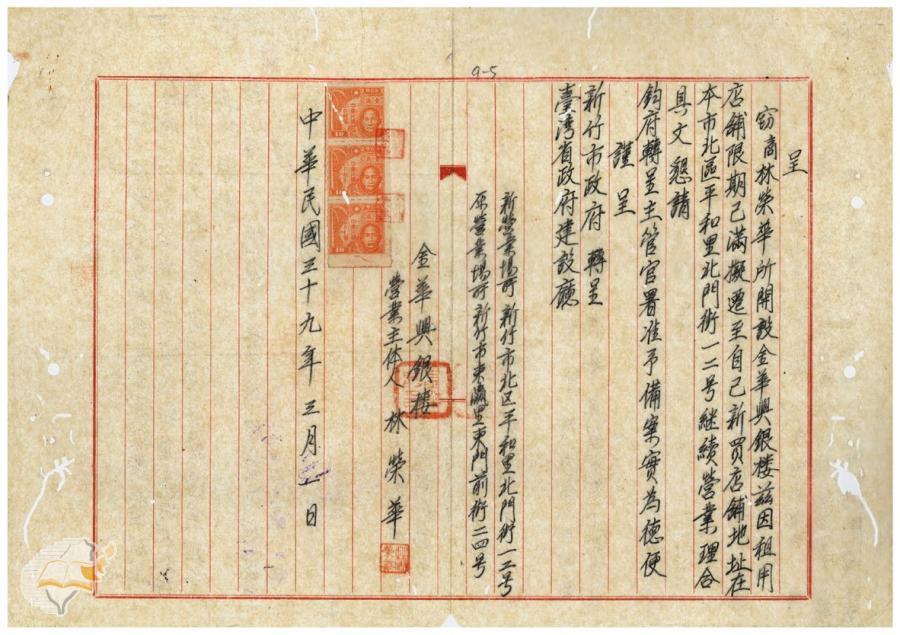 9-5
呈
窃商林榮華所開設金華興銀楼茲因租用
店舖限期已滿擬遷至自己新買店舖地址在
本市北區平和里北門街一二号継續營業理合
具文懇請
鈞府轉呈主管官署准予備案實為德便
謹呈
新竹市政府 轉呈
臺湾省政府建設廳
新營業場所 新竹市北区平和里北門街一二号
原營業場所 新竹市東瀛里東門前街二四号
金華興銀楼
營業主体人 林榮華
中華民國三十九年三月 日